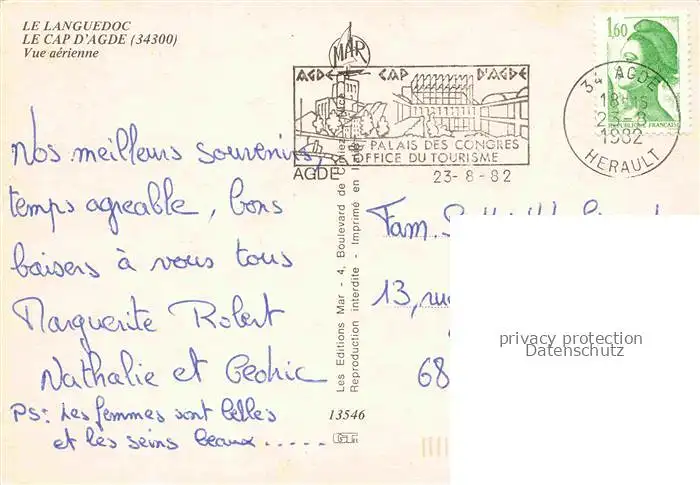 LE LANGUEDOC
LE CAP D'AGDE (34300)
Vue aérienne
MAR
AGDE CAP D'AGDE
PALAIS DES CONGRES
OFFICE DU TOURISME
AGDE
23-8-82
1,60
REPUBLIQUE FRANCAISE
34 AGDE
18H15
23-8
1982
HERAULT
Nos meilleurs souvenirs,
temps agreable, bons
baisers à vous tous
Marguerite Robert
Nathalie et Cedric
PS: Les femmes sont belles
et les seins beaux.....
Les Editions Mar - 4, Boulevard de
Reproduction interdite - Imprimé en
13546
Fam.
13, rue
68
privacy protection
Datenschutz